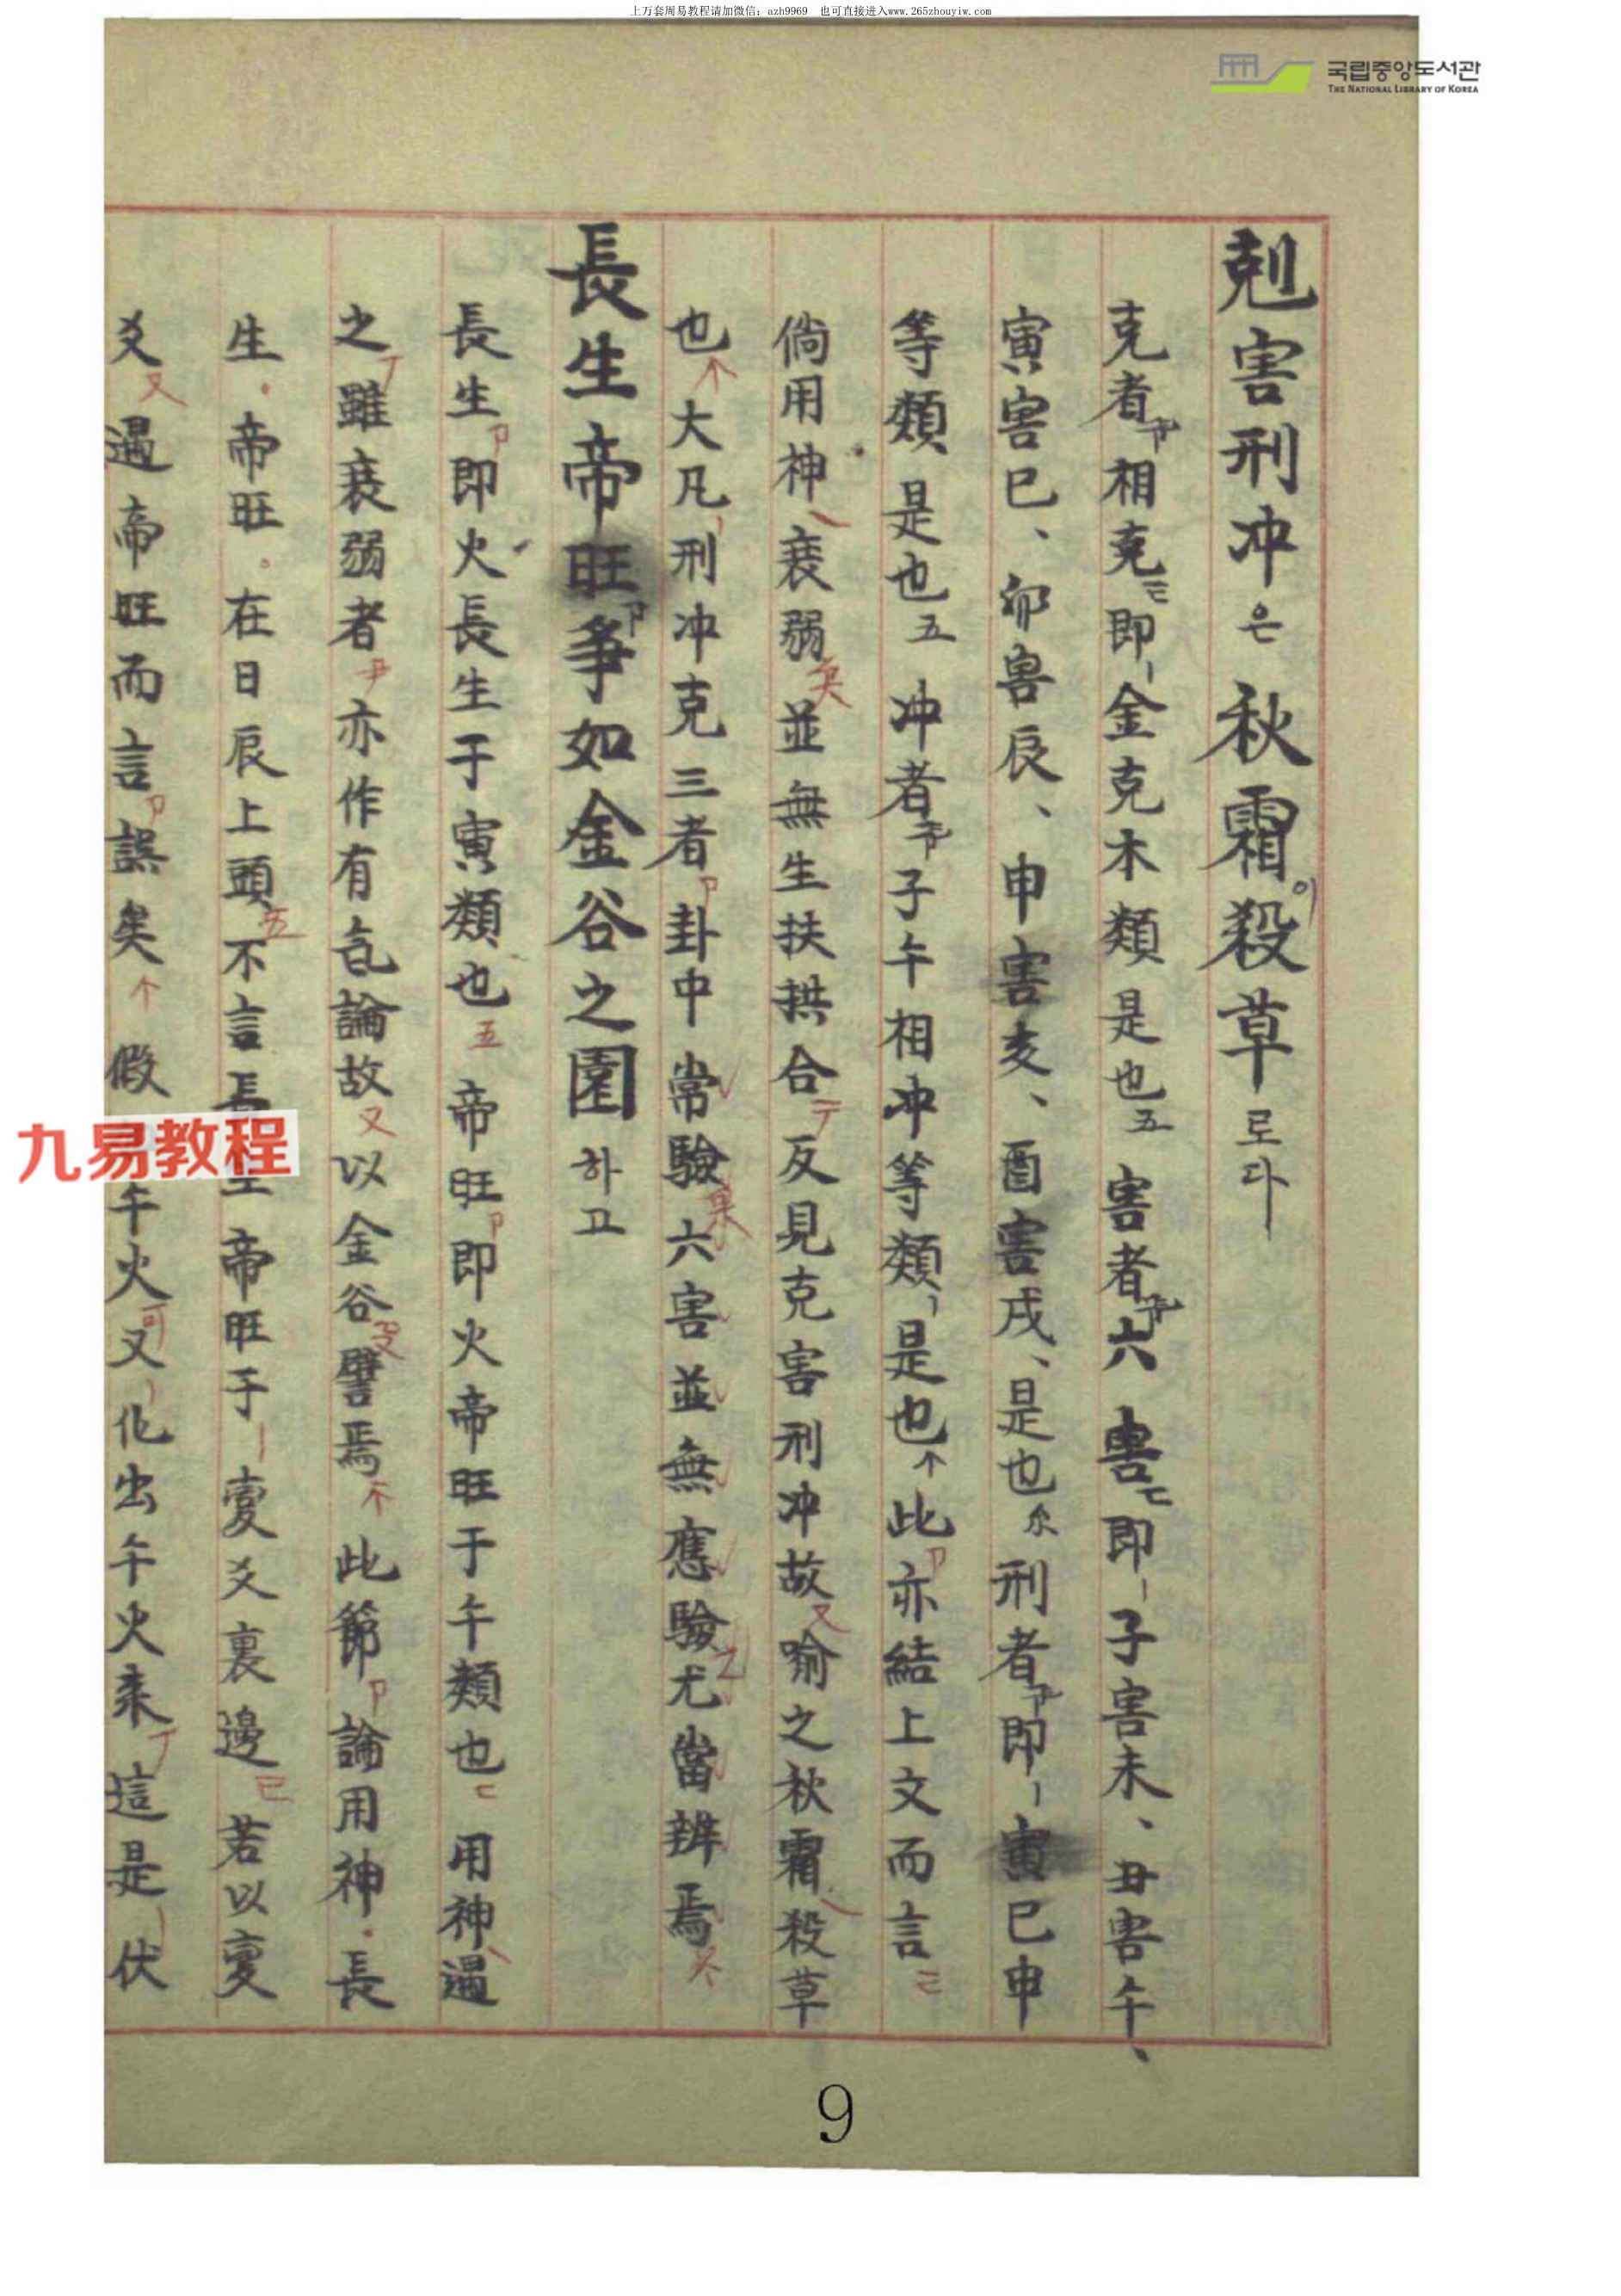 上万套周易教程请加微信：azh9969　也可直接进入www.265zhouyiw.com
국립중앙도서관
THE NATIONAL LIBRARY OF KOREA
剋害刑冲은秋霜이殺草로다
克者相克即金克木類是也五害者六害即子害未、丑害午、
寅害巳、卯害辰、申害亥、酉害戌、是也刑者即寅巳申
等類是也五冲者子午相冲等類是也此亦結上文而言
倘用神衰弱並無生扶拱合反見克害刑冲故喻之秋霜殺草
也大凡刑冲克三者卩卦中常驗六害並無應驗尤當辨焉
長生帝旺卩爭如金谷之園하고
長生卩即火長生于寅類也五帝旺卩即火帝旺于午類也用神遇
之雖衰弱者亦作有氣論故又以金谷譬焉此節卩論用神長
生帝旺在日辰上頭五不言長生帝旺于變爻裏邊若以變
爻又遇帝旺而言卩誤矣假午火又化出午火来這是伏
九易教程
9